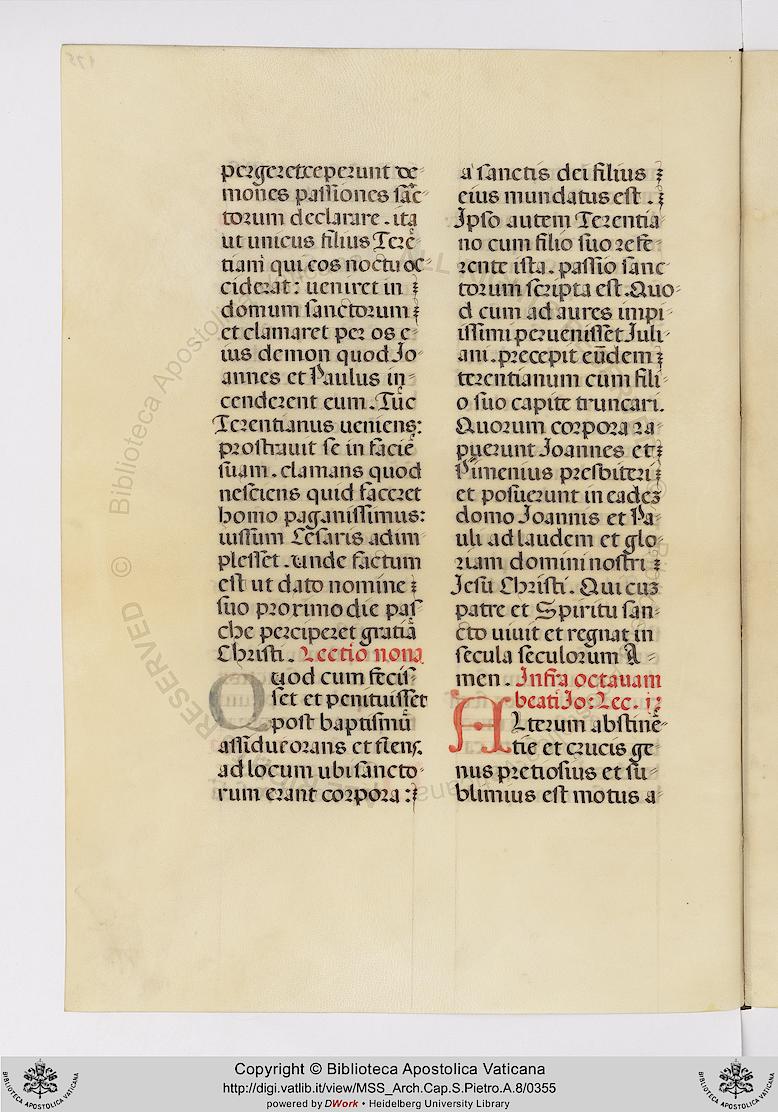 pergeret ceperunt de-
mones passiones sāc-
torum declarare . ita
ut unicus filius Terē-
tiani qui eos noctu oc-
ciderat : ueniret in
domum sanctorum
et clamaret per os e-
ius demon quod Jo-
annes et Paulus in-
cenderent eum . Tūc
Terentianus ueniens :
prostrauit se in faciē
suam . clamans quod
nesciens quid faceret
homo paganissimus :
iussum Cesaris adim-
plesset . unde factum
est ut dato nomine
suo proximo die pas-
che perciperet gratiā
Christi . Lectio nona
Quod cum fecis-
set et penituisset
post baptismū
assidue orans et flens .
ad locum ubi sancto-
rum erant corpora :
a sanctis dei filius
eius mundatus est .
Ipso autem Terentia-
no cum filio suo refe-
rente ista . passio sanc-
torum scripta est . Quo-
d cum ad aures impi-
issimi peruenisset Juli-
ani . precepit eūdem
terentianum cum fili-
o suo capite truncari .
Quorum corpora ra-
puerunt Joannes et
Pimenius presbiteri
et posuerunt in eadeꝫ
domo Joannis et Pa-
uli ad laudem et glo-
riam domini nostri
Jesu Christi . Qui cuꝫ
patre et Spiritu san-
cto uiuit et regnat in
secula seculorum A-
men . Infra octauam
beati Jo : Lec . i
Alterum abstinē-
tie et crucis ge-
nus pretiosius et su-
blimius est motus a-
Copyright © Biblioteca Apostolica Vaticana
http://digi.vatlib.it/view/MSS_Arch.Cap.S.Pietro.A.8/0355
powered by DWork • Heidelberg University Library